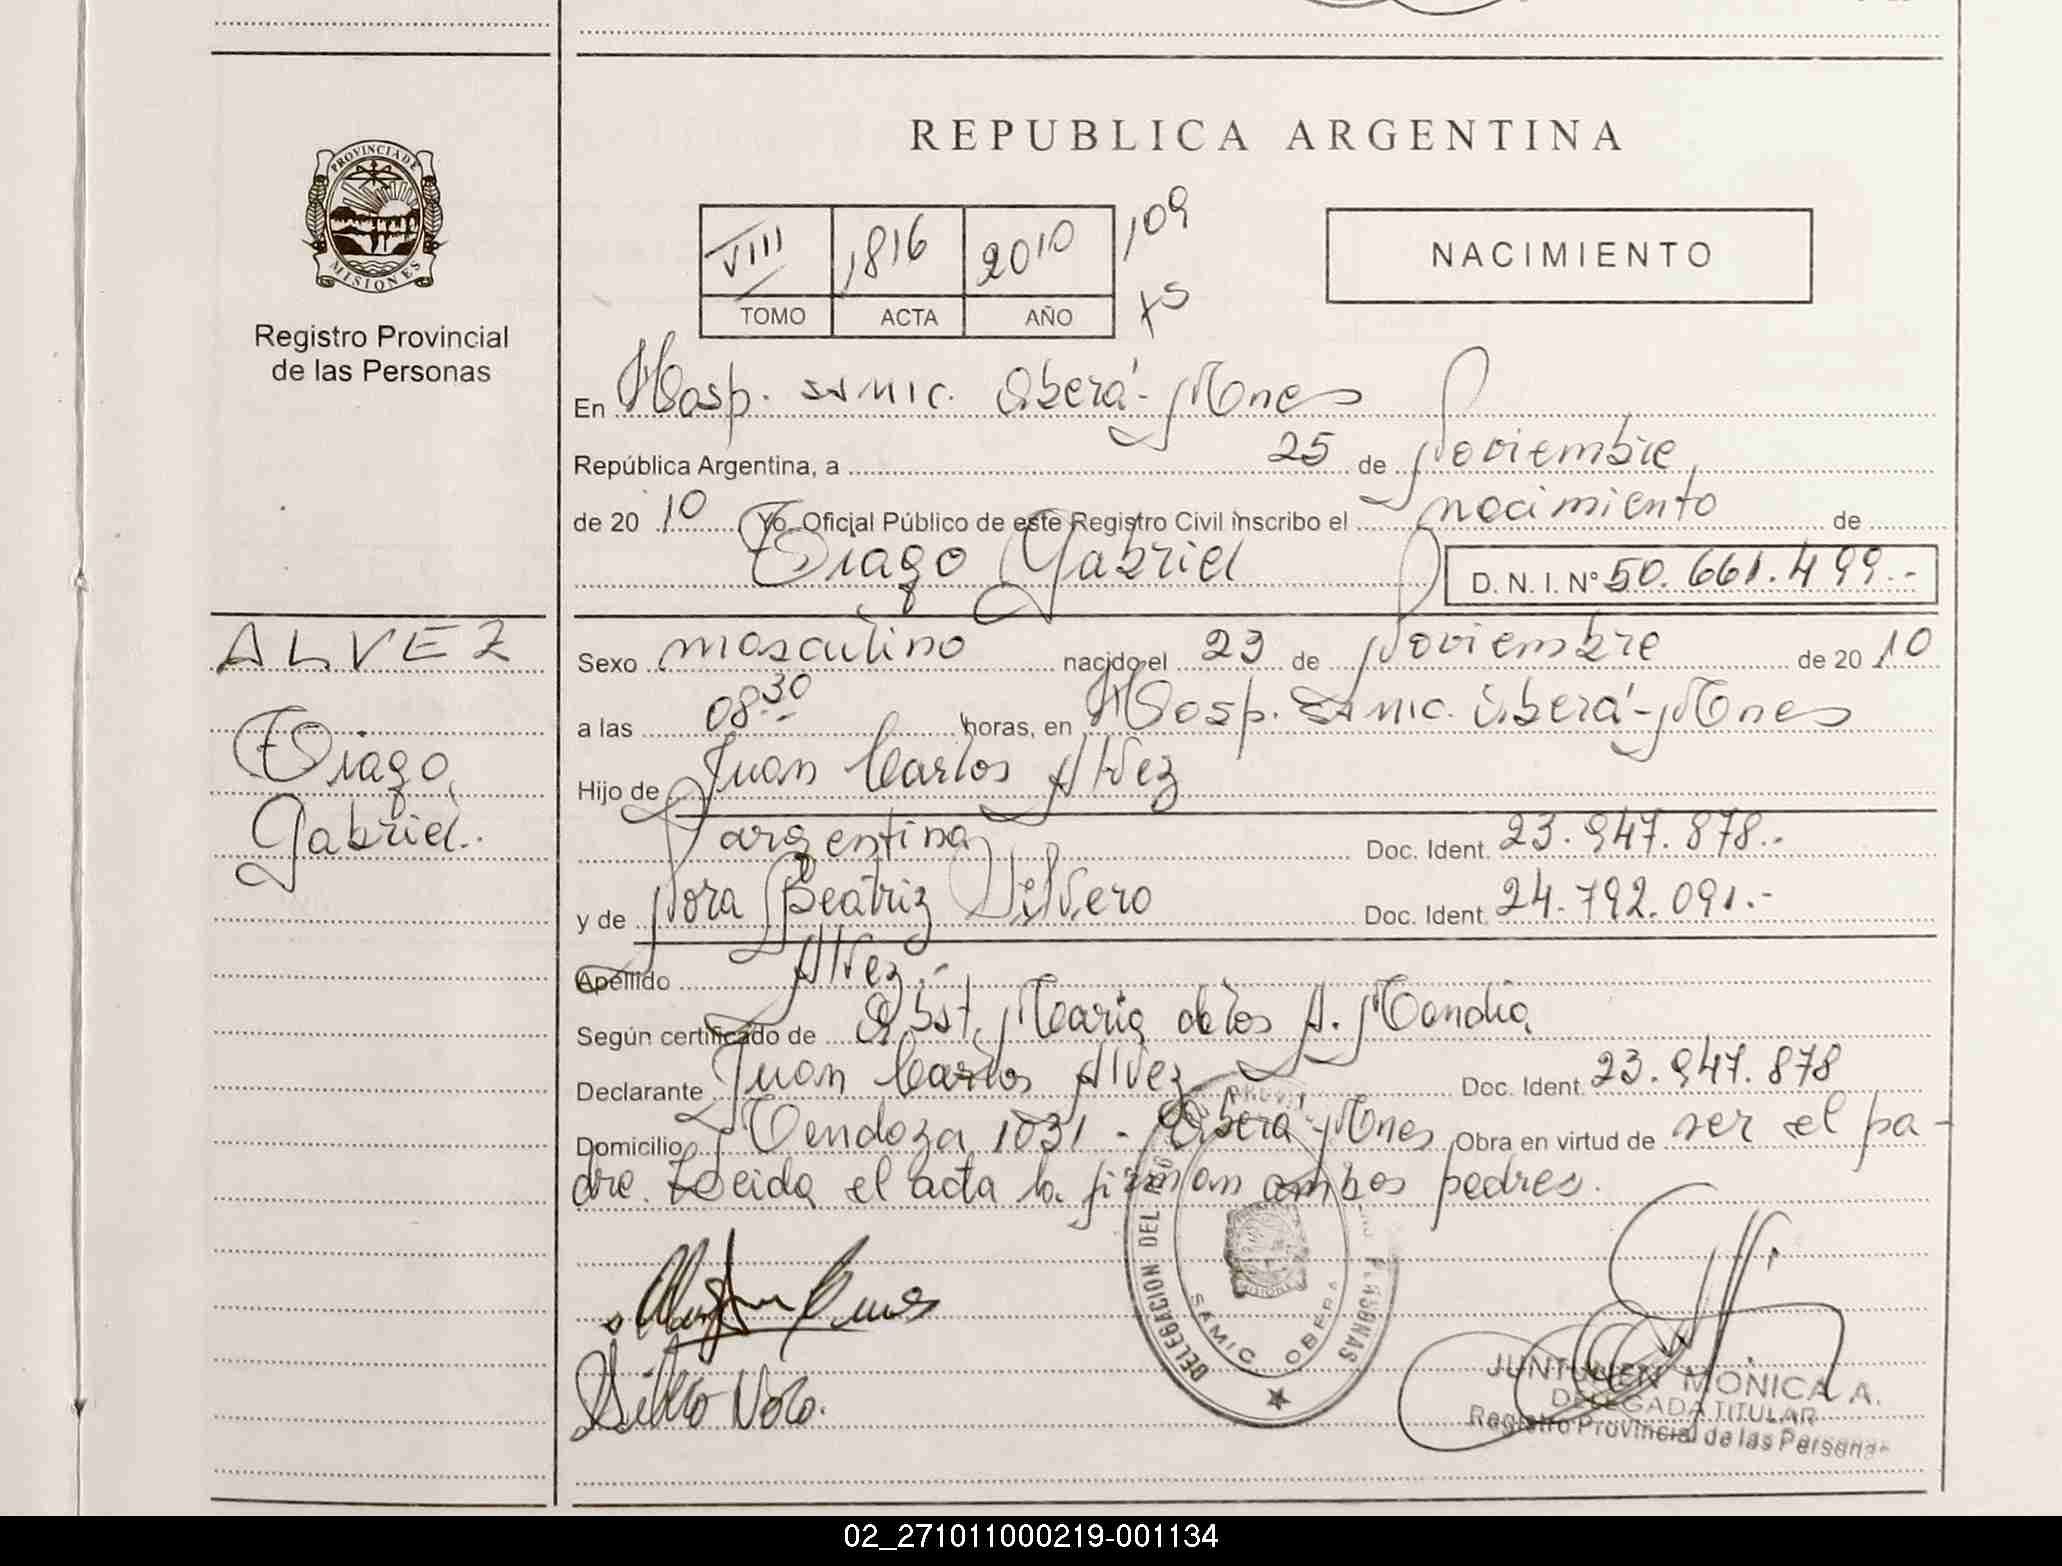 REPUBLICA ARGENTINA
PROVINCIA DE MISIONES
Registro Provincial
de las Personas
VIII 1816 2010 109
TOMO ACTA AÑO
NACIMIENTO
En Hosp. SAMIC. Oberá - Mnes
República Argentina, a 25 de Noviembre
de 20 10 Yo, Oficial Público de este Registro Civil inscribo el nacimiento de
Tiago Gabriel D. N. I. Nº 50.661.499.-
ALVEZ
Tiago
Gabriel.
Sexo masculino nacido el 23 de Noviembre de 20 10
a las 08:30 horas, en Hosp. SAMIC. Oberá - Mnes
Hijo de Juan Carlos Alvez
argentina Doc. Ident. 23.947.878.-
y de Nora Beatriz Silvero Doc. Ident. 24.792.091.-
Apellido Alvez.-
Según certificado de Obst. Maria de los A. Mendia
Declarante Juan Carlos Alvez Doc. Ident. 23.947.878
Domicilio Mendoza 1031 - Oberá - Mnes Obra en virtud de ser el pa-
dre. Leida el acta la firman ambos padres.
DELEGACION DEL PERSONAS
SAMIC OBERA
MISIONES
Silvero Nora.
JUNTUNEN MONICA A.
DELEGADA TITULAR
Registro Provincial de las Personas
02_271011000219-001134